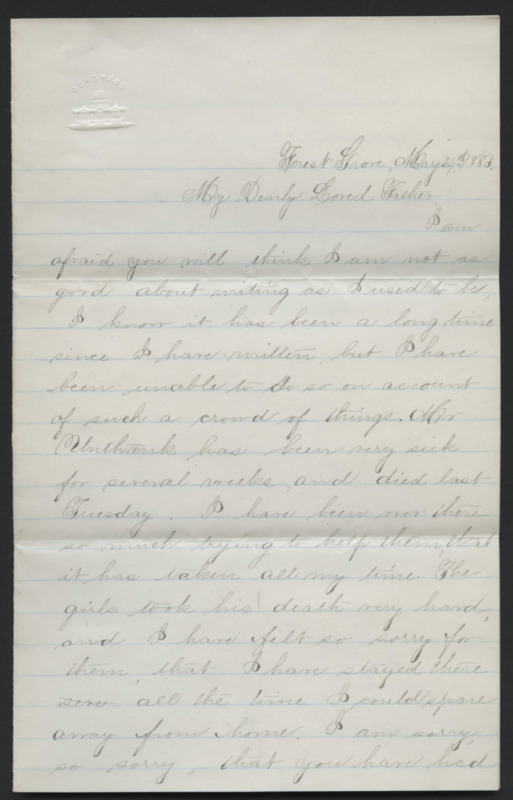 CONGRESS
Forest Grove, May 24th 1883.
My Dearly Loved Father.
I am
afraid you will think I am not as
good about writing as I used to be,
I know it has been a long time
since I have written but I have
been unable to do so on account
of such a crowd of things. Mr
Unthank has been very sick
for several weeks, and died last
Tuesday. I have been over there
so much trying to help them, that
it has taken all my time. The
girls took his death very hard,
and I have felt so sorry for
them, that I have stayed there
all the time I could spare
away from home. I am sorry,
so sorry, that you have had